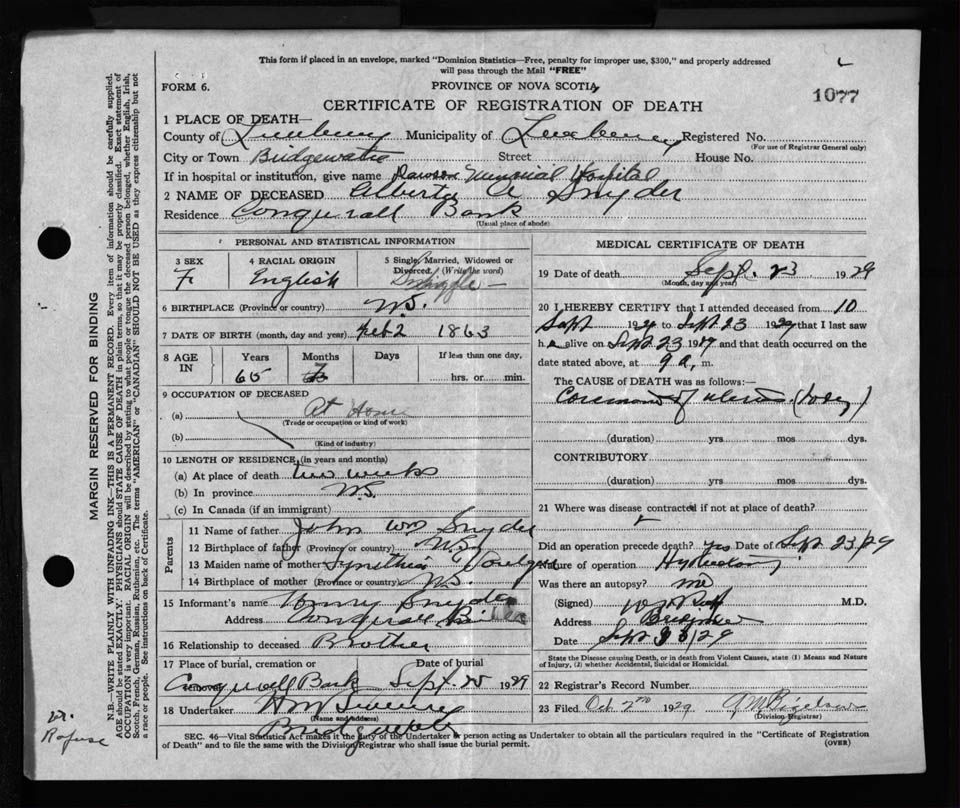 This form if placed in an envelope, marked "Dominion Statistics—Free, penalty for improper use, $300," and properly addressed
will pass through the Mail "FREE"
FORM 6.
PROVINCE OF NOVA SCOTIA
1077
CERTIFICATE OF REGISTRATION OF DEATH
1 PLACE OF DEATH—
County of Lunenburg Municipality of Lunenburg Registered No.
(For use of Registrar General only)
City or Town Bridgewater Street House No.
If in hospital or institution, give name Dawson Memorial Hospital
2 NAME OF DECEASED Alberta A Snyder
Residence Conquerall Bank
(Usual place of abode)
PERSONAL AND STATISTICAL INFORMATION
3 SEX F
4 RACIAL ORIGIN English
5 Single, Married, Widowed or Divorced. (Write the word) Single
6 BIRTHPLACE (Province or country) N.S.
7 DATE OF BIRTH (month, day and year) Feb 2 1863
8 AGE IN Years Months Days If less than one day,
65 7 hrs. or min.
9 OCCUPATION OF DECEASED
(a) At Home
(Trade or occupation or kind of work)
(b)
(Kind of industry)
10 LENGTH OF RESIDENCE, (in years and months)
(a) At place of death two weeks
(b) In province N.S.
(c) In Canada (if an immigrant)
Parents
11 Name of father John Wm Snyder
12 Birthplace of father (Province or country) N.S.
13 Maiden name of mother
14 Birthplace of mother (Province or country) N.S.
15 Informant's name Snyder
Address Conquerall
16 Relationship to deceased Brother
17 Place of burial, cremation or removal Date of burial
Conquerall Bank Sept. 25 1929
18 Undertaker
(Name and address)
Bridgewater
MEDICAL CERTIFICATE OF DEATH
19 Date of death Sept. 23 1929
(Month, day and year)
20 I HEREBY CERTIFY that I attended deceased from 10
Sept 1929 to Sept 23 1929 that I last saw
h alive on Sept 23 1929 and that death occurred on the
date stated above, at 9 a. m.
The CAUSE OF DEATH was as follows:—
(duration) yrs mos dys.
CONTRIBUTORY
(duration) yrs mos dys.
21 Where was disease contracted if not at place of death?
Did an operation precede death? yes Date of Sept 23/29
Nature of operation
Was there an autopsy? no
(Signed) M.D.
Address
Date Sept /29
State the Disease causing Death, or in death from Violent Causes, state (1) Means and Nature
of Injury, (2) whether Accidental, Suicidal or Homicidal.
22 Registrar's Record Number
23 Filed Oct 2nd 1929
(Division Registrar)
SEC. 46—Vital Statistics Act makes it the duty of the Undertaker or person acting as Undertaker to obtain all the particulars required in the "Certificate of Registration
of Death" and to file the same with the Division Registrar who shall issue the burial permit.
(OVER)
MARGIN RESERVED FOR BINDING
N.B.—WRITE PLAINLY WITH UNFADING INK—THIS IS A PERMANENT RECORD. Every item of information should be carefully supplied.
AGE should be stated EXACTLY. PHYSICIANS should STATE CAUSE OF DEATH in plain terms, so that it may be properly classified. Exact statement of
OCCUPATION is very important. RACIAL ORIGIN will be described by stating to what people or tongue the deceased person belonged, whether English, Irish,
Scotch, French, German, Russian, Ruthenian, etc. The terms "AMERICAN" or "CANADIAN" SHOULD NOT BE USED as they express citizenship but not
a race or people. See instructions on back of Certificate.